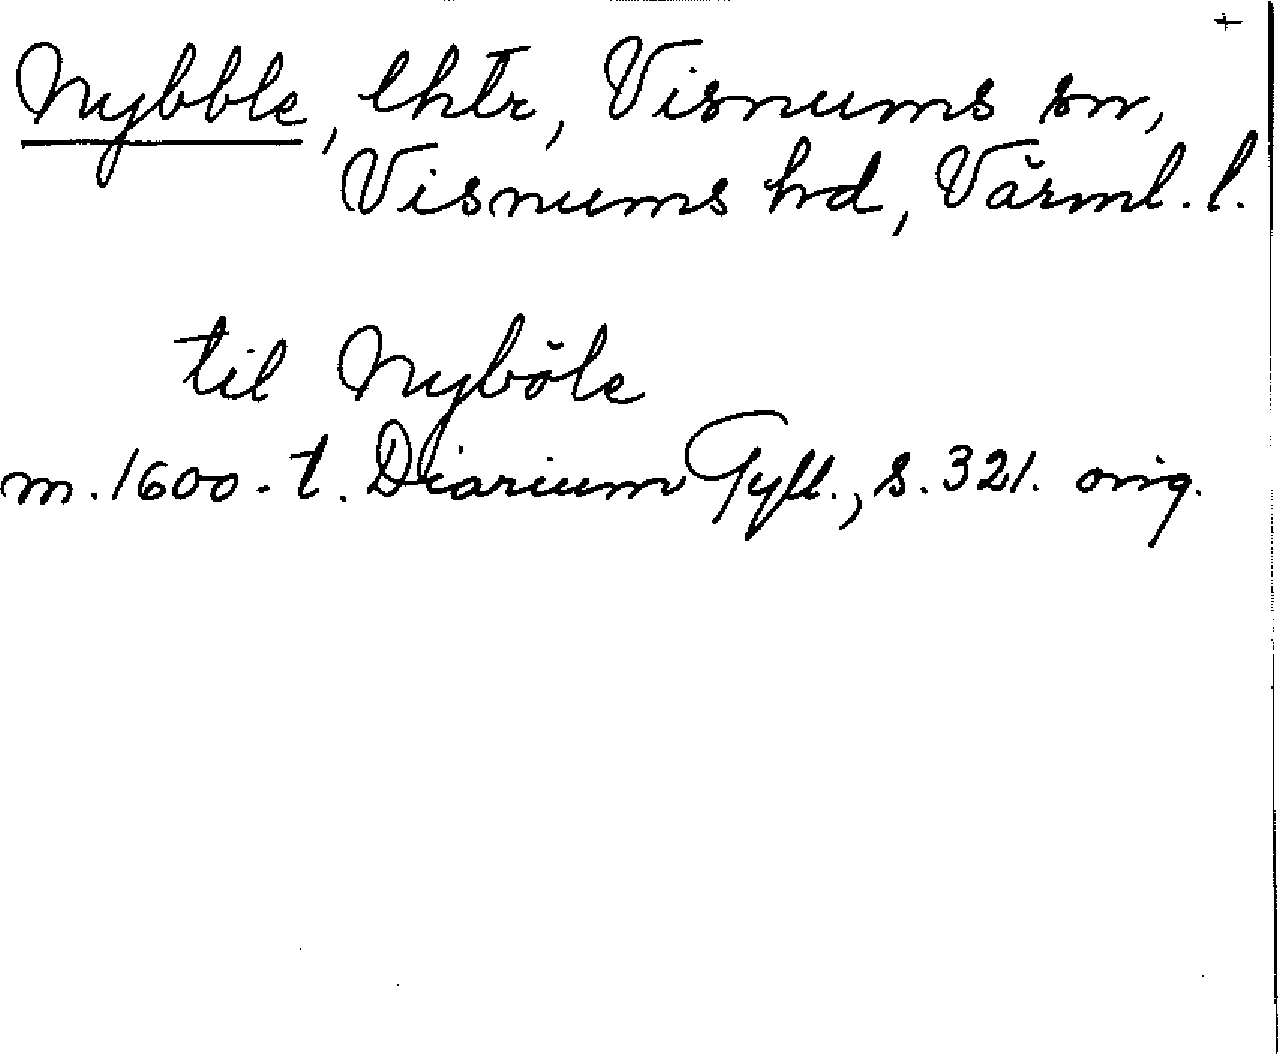 +
Nybble, lhtr, Visnums sn,
Visnums hd, Värml. l.
til Nyböle
m. 1600-t. Diarium Gyll., s. 321. orig.